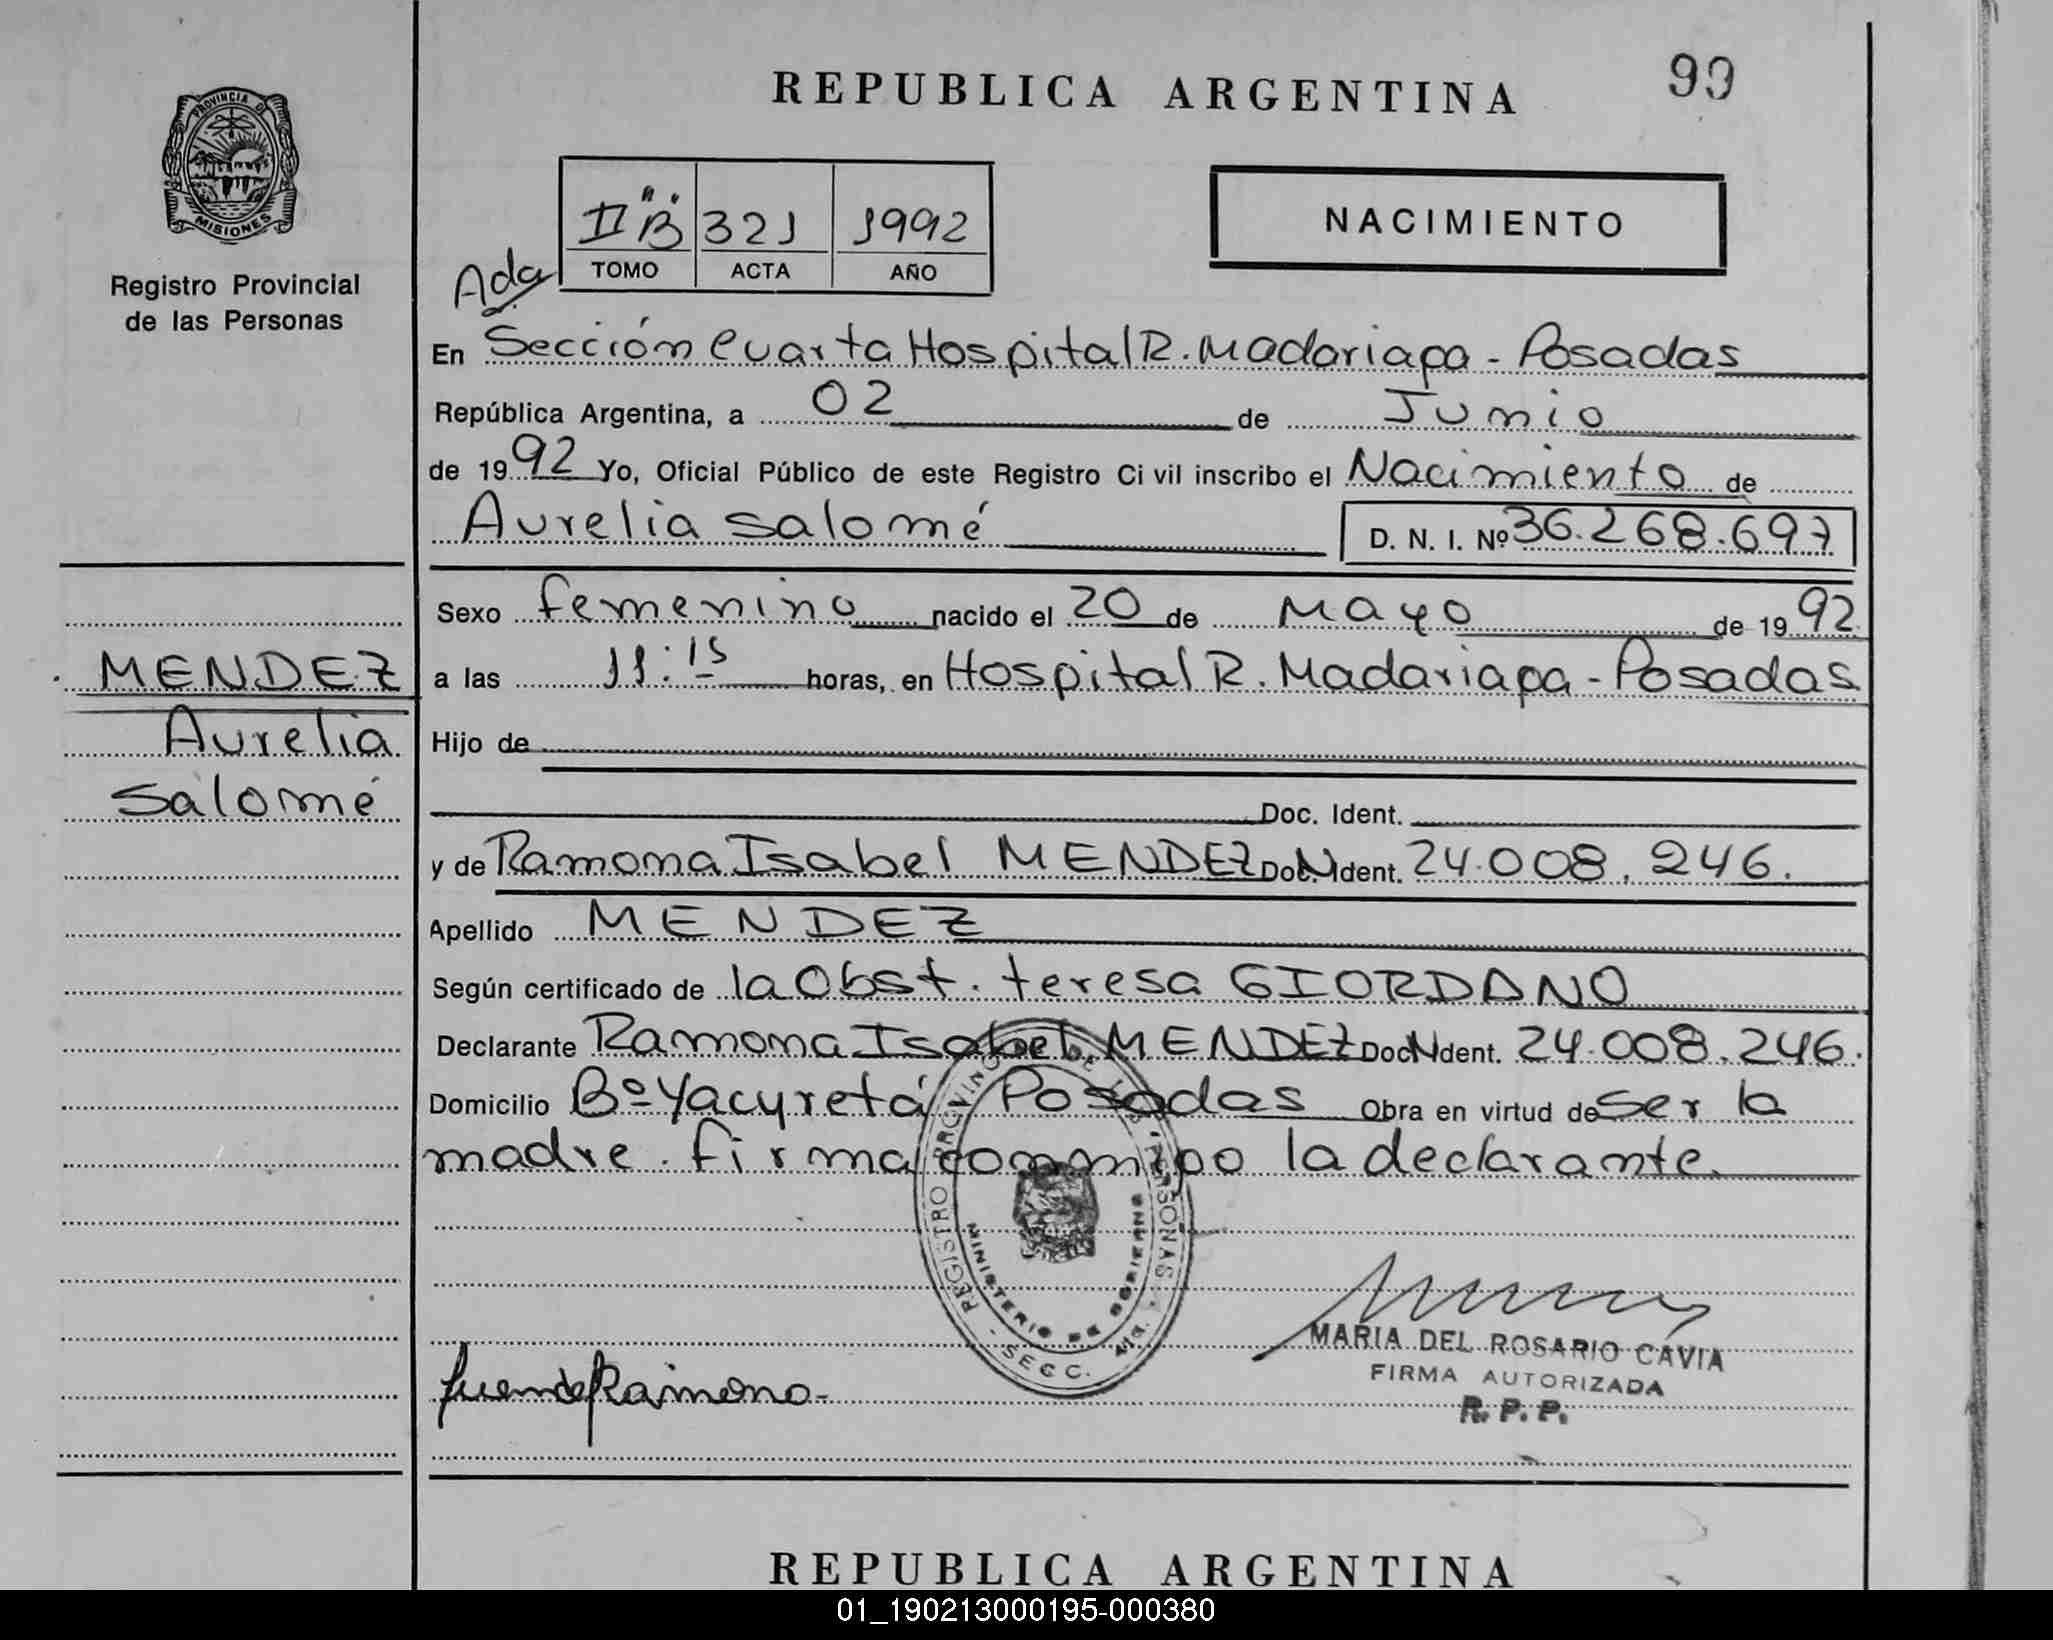 REPUBLICA ARGENTINA
99
PROVINCIA DE
MISIONES
Registro Provincial
de las Personas
II "B" 321 1992
TOMO ACTA AÑO
NACIMIENTO
Ada
En Sección Cuarta Hospital R. Madariaga - Posadas
República Argentina, a 02 de Junio
de 1992 Yo, Oficial Público de este Registro Ci vil inscribo el Nacimiento de
Aurelia Salomé D. N. I. Nº 36.268.697
Sexo femenino nacido el 20 de Mayo de 1992
MENDEZ
Aurelia
Salomé
a las 11:15 horas, en Hospital R. Madariaga - Posadas
Hijo de
Doc. Ident.
y de Ramona Isabel MENDEZ Doc. Ident. 24.008.246.
Apellido MENDEZ
Según certificado de la Obst. teresa GIORDANO
Declarante Ramona Isabel MENDEZ Doc Ident. 24.008.246.
Domicilio Bº Yacyretá Posadas Obra en virtud de ser la
madre. firma conmigo la declarante.
REGISTRO PROVINCIAL DE LAS PERSONAS
MINISTERIO DE GOBIERNO
SECC.
MARIA DEL ROSARIO CAVIA
FIRMA AUTORIZADA
R. P. P.
Ramona
REPUBLICA ARGENTINA
01_190213000195-000380